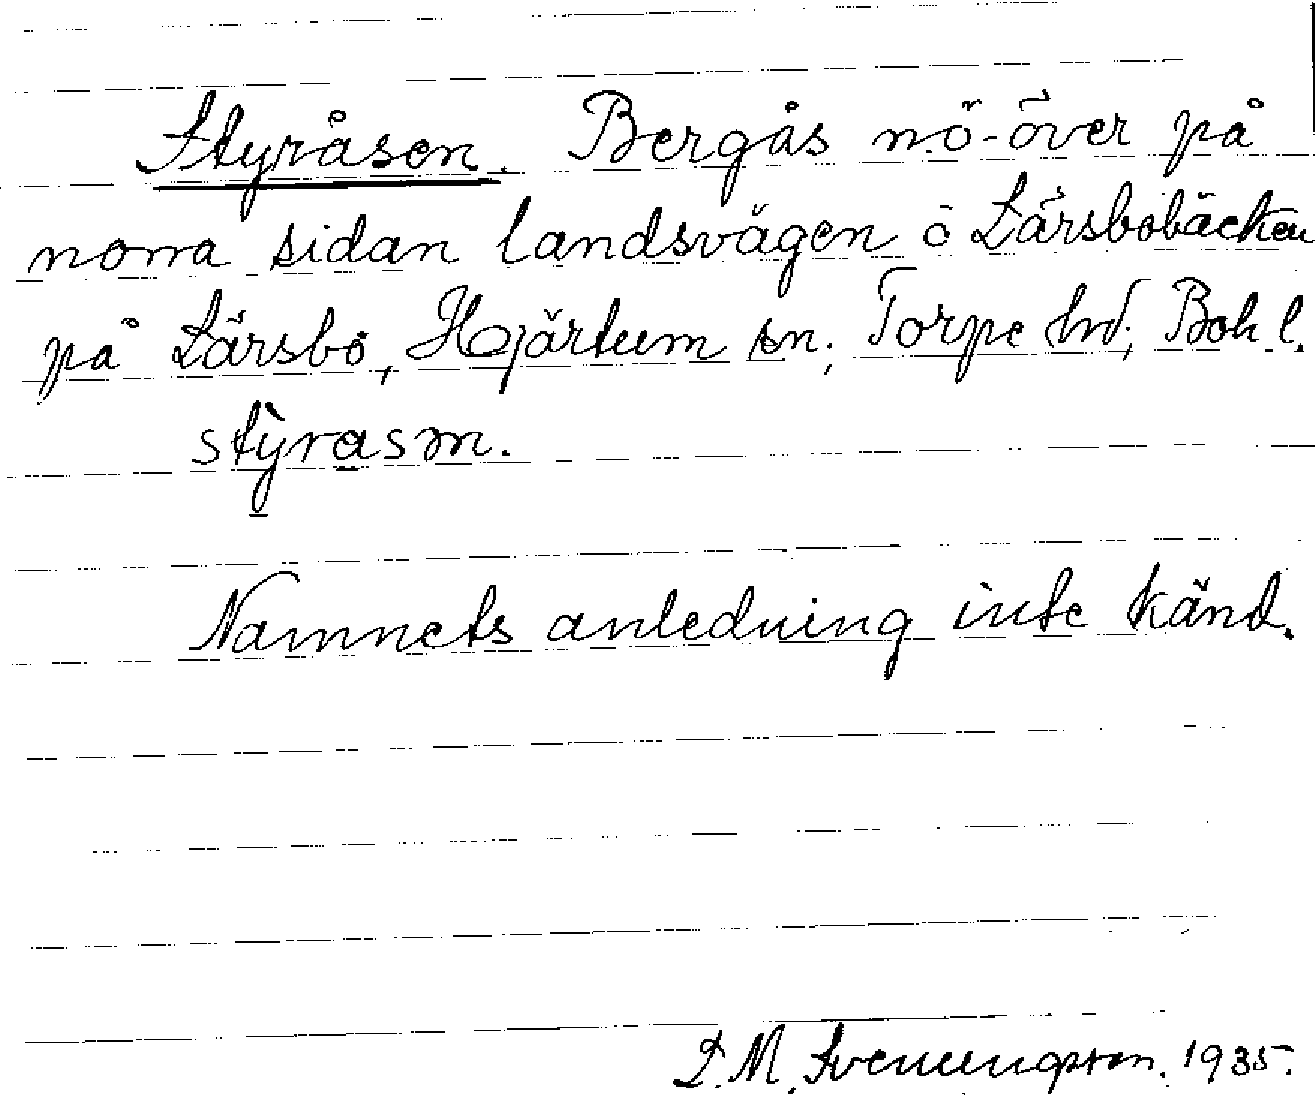 Styråsen. Bergås nö-över på
norra sidan landsvägen ö Lärsbobäcken
på Lärsbo, Hjärtum sn; Torpe hd; Boh l.
stỳrasm.
Namnets anledning inte känd.
D. M. Svenungsson. 1935.